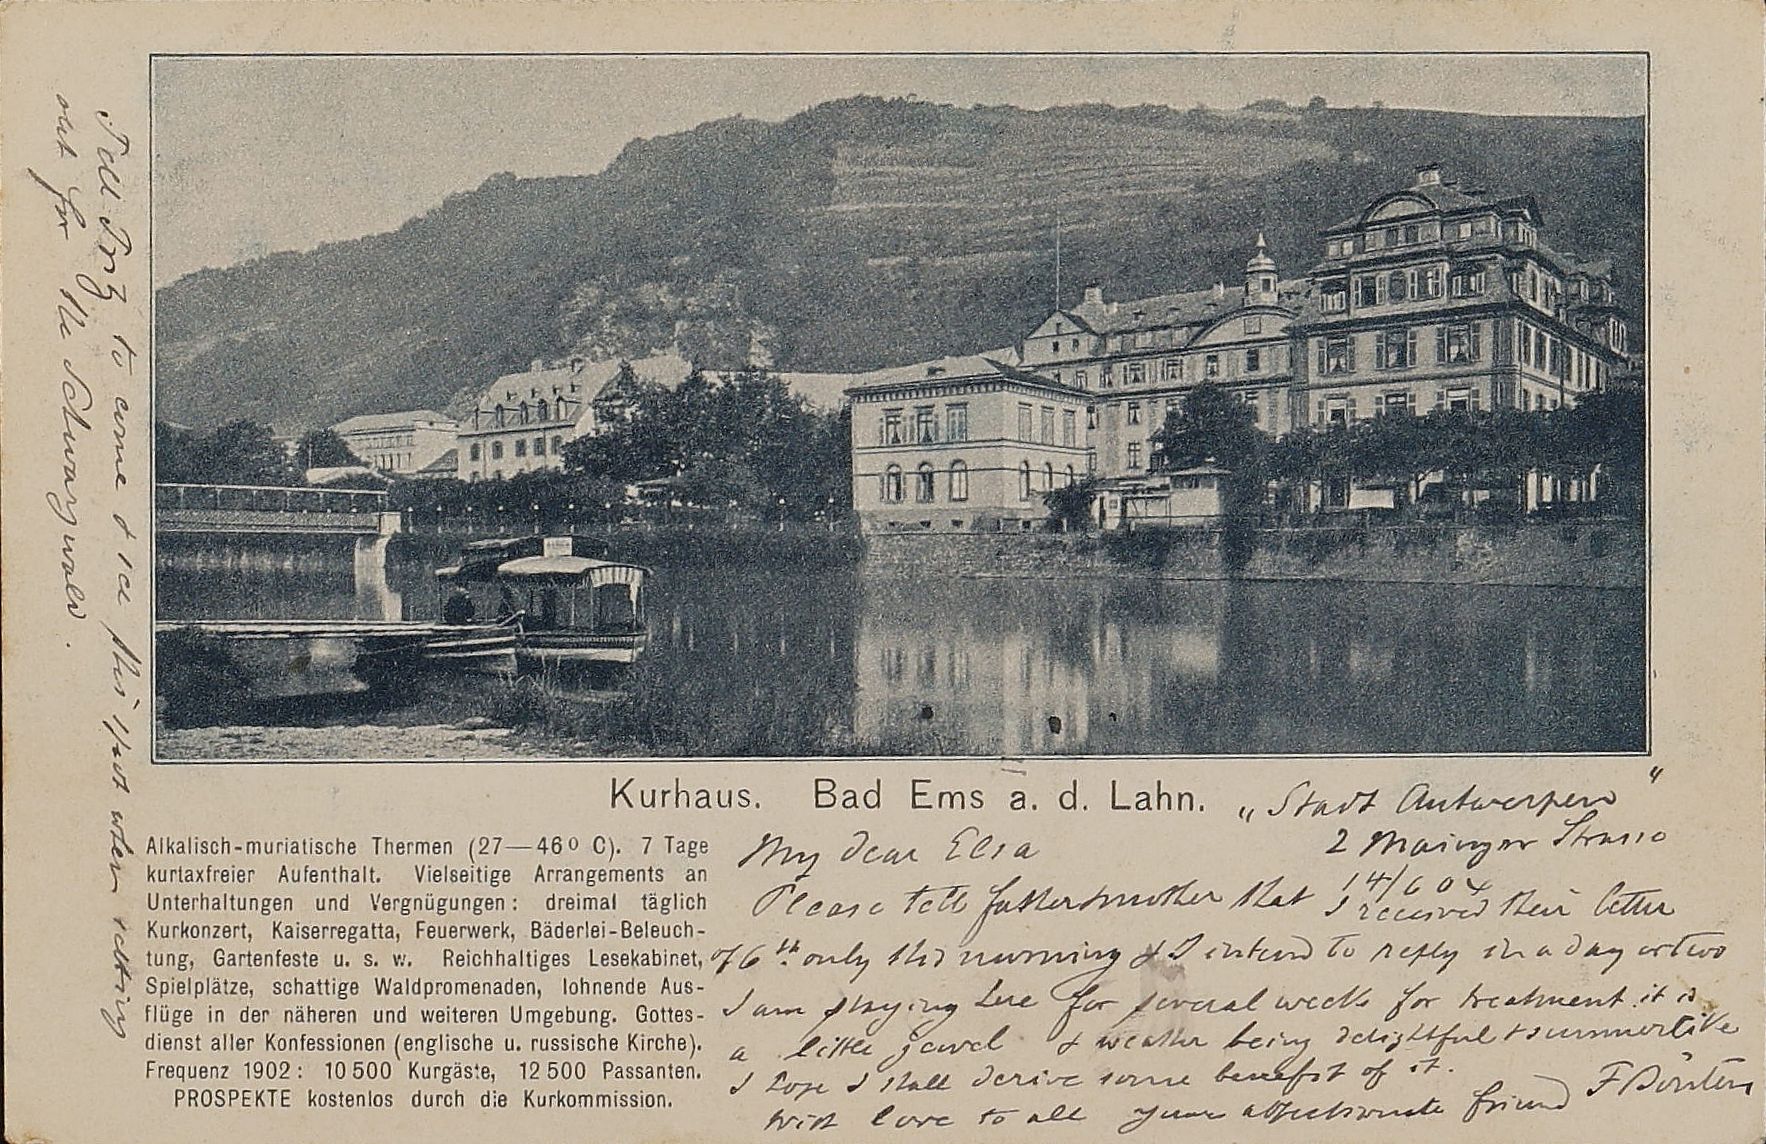 Kurhaus. Bad Ems a. d. Lahn.
Alkalisch-muriatische Thermen (27—46⁰ C). 7 Tage
kurtaxfreier Aufenthalt. Vielseitige Arrangements an
Unterhaltungen und Vergnügungen: dreimal täglich
Kurkonzert, Kaiserregatta, Feuerwerk, Bäderlei-Beleuch-
tung, Gartenfeste u. s. w. Reichhaltiges Lesekabinet,
Spielplätze, schattige Waldpromenaden, lohnende Aus-
flüge in der näheren und weiteren Umgebung. Gottes-
dienst aller Konfessionen (englische u. russische Kirche).
Frequenz 1902: 10500 Kurgäste, 12500 Passanten.
PROSPEKTE kostenlos durch die Kurkommission.
„Stadt Antwerpen"
2 Mainzer Strasse
14/6 04
My dear Elsa
Please tell father & mother that I received their letter
of 6th. only this morning & I intend to reply in a day or two
I am staying here for several weeks for treatment. it is
a little jewel & weather being delightful & summerlike
I hope I shall derive some benefit of it.
With love to all your affectionate friend F
Tell to come & see this spot when setting
out for the Schwarzwald.